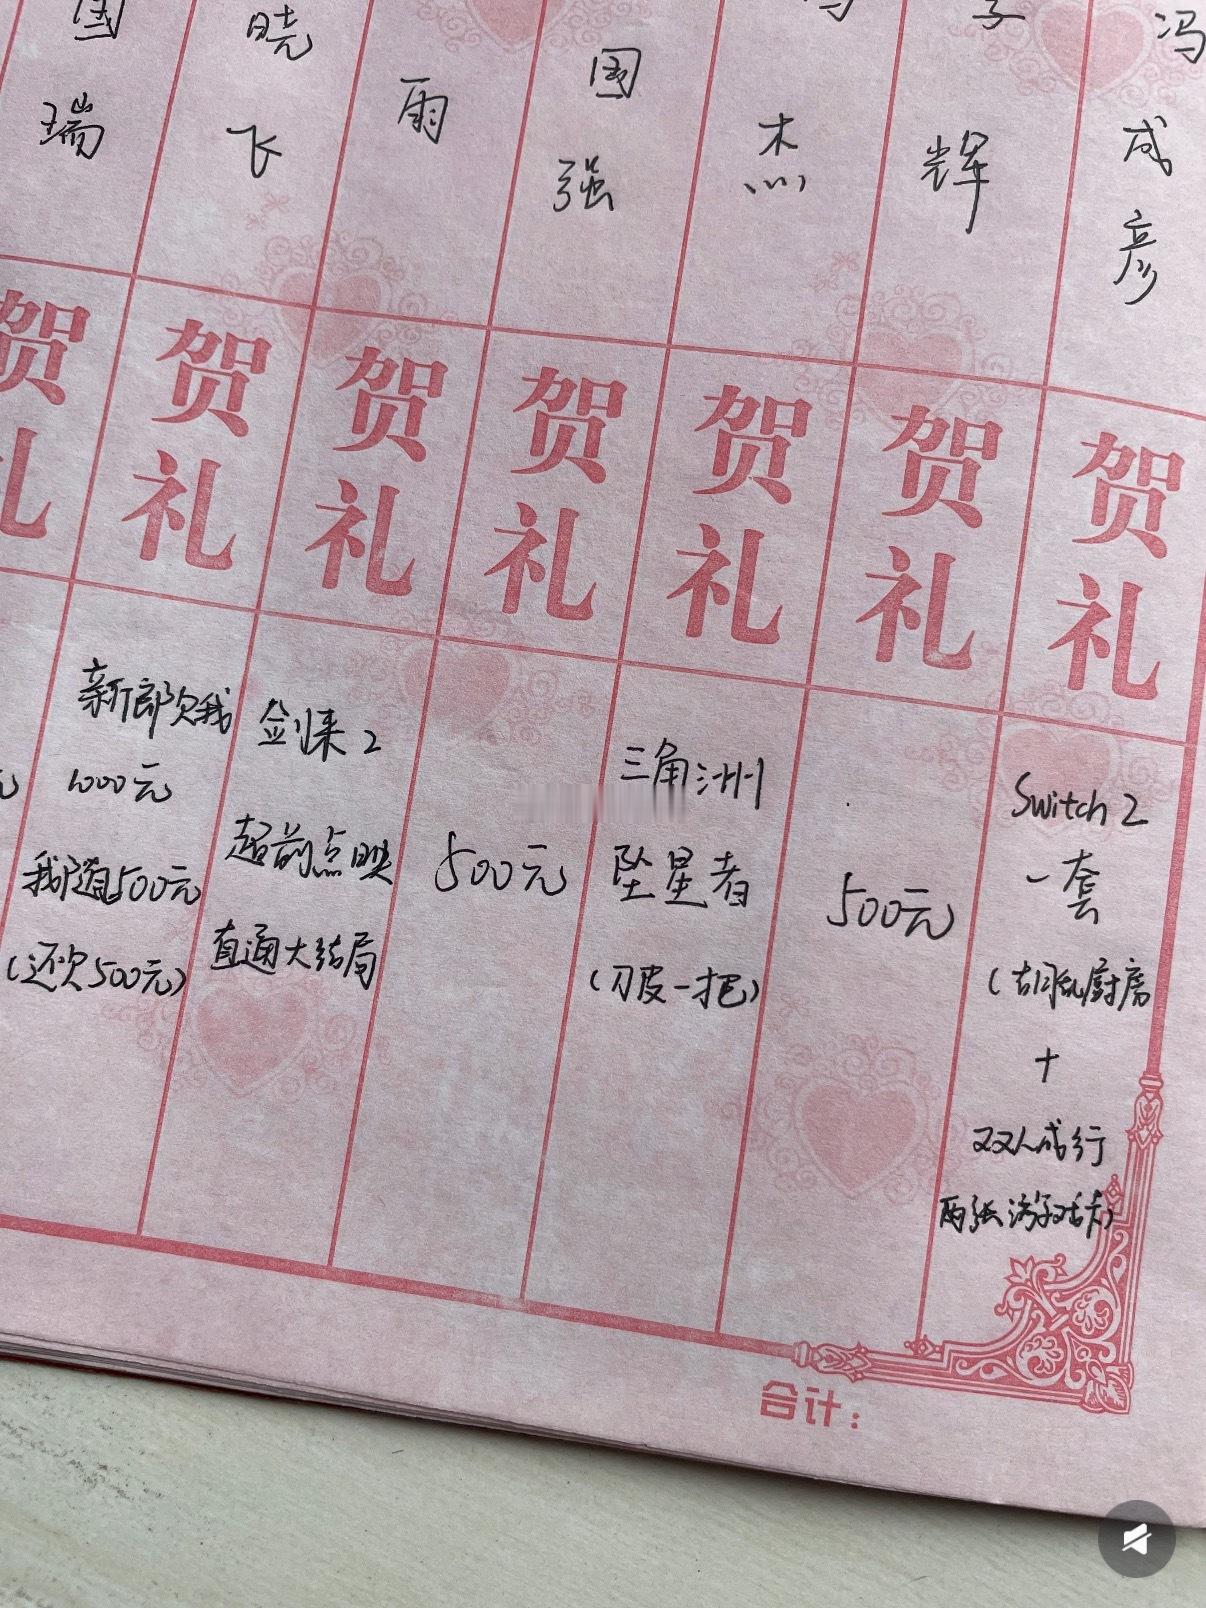 冯成彦
贺礼
Switch 2
一套
(胡乱厨房
+
双人成行
两张游戏卡)
辉
贺礼
500元
杰
贺礼
三角洲
坠星者
(刀皮一把)
国强
贺礼
500元
雨
贺礼
剑来2
超前点映
直通大结局
晓飞
贺礼
新郎欠我
1000元
我随500元
(还欠500元)
国瑞
贺礼
元
合计：